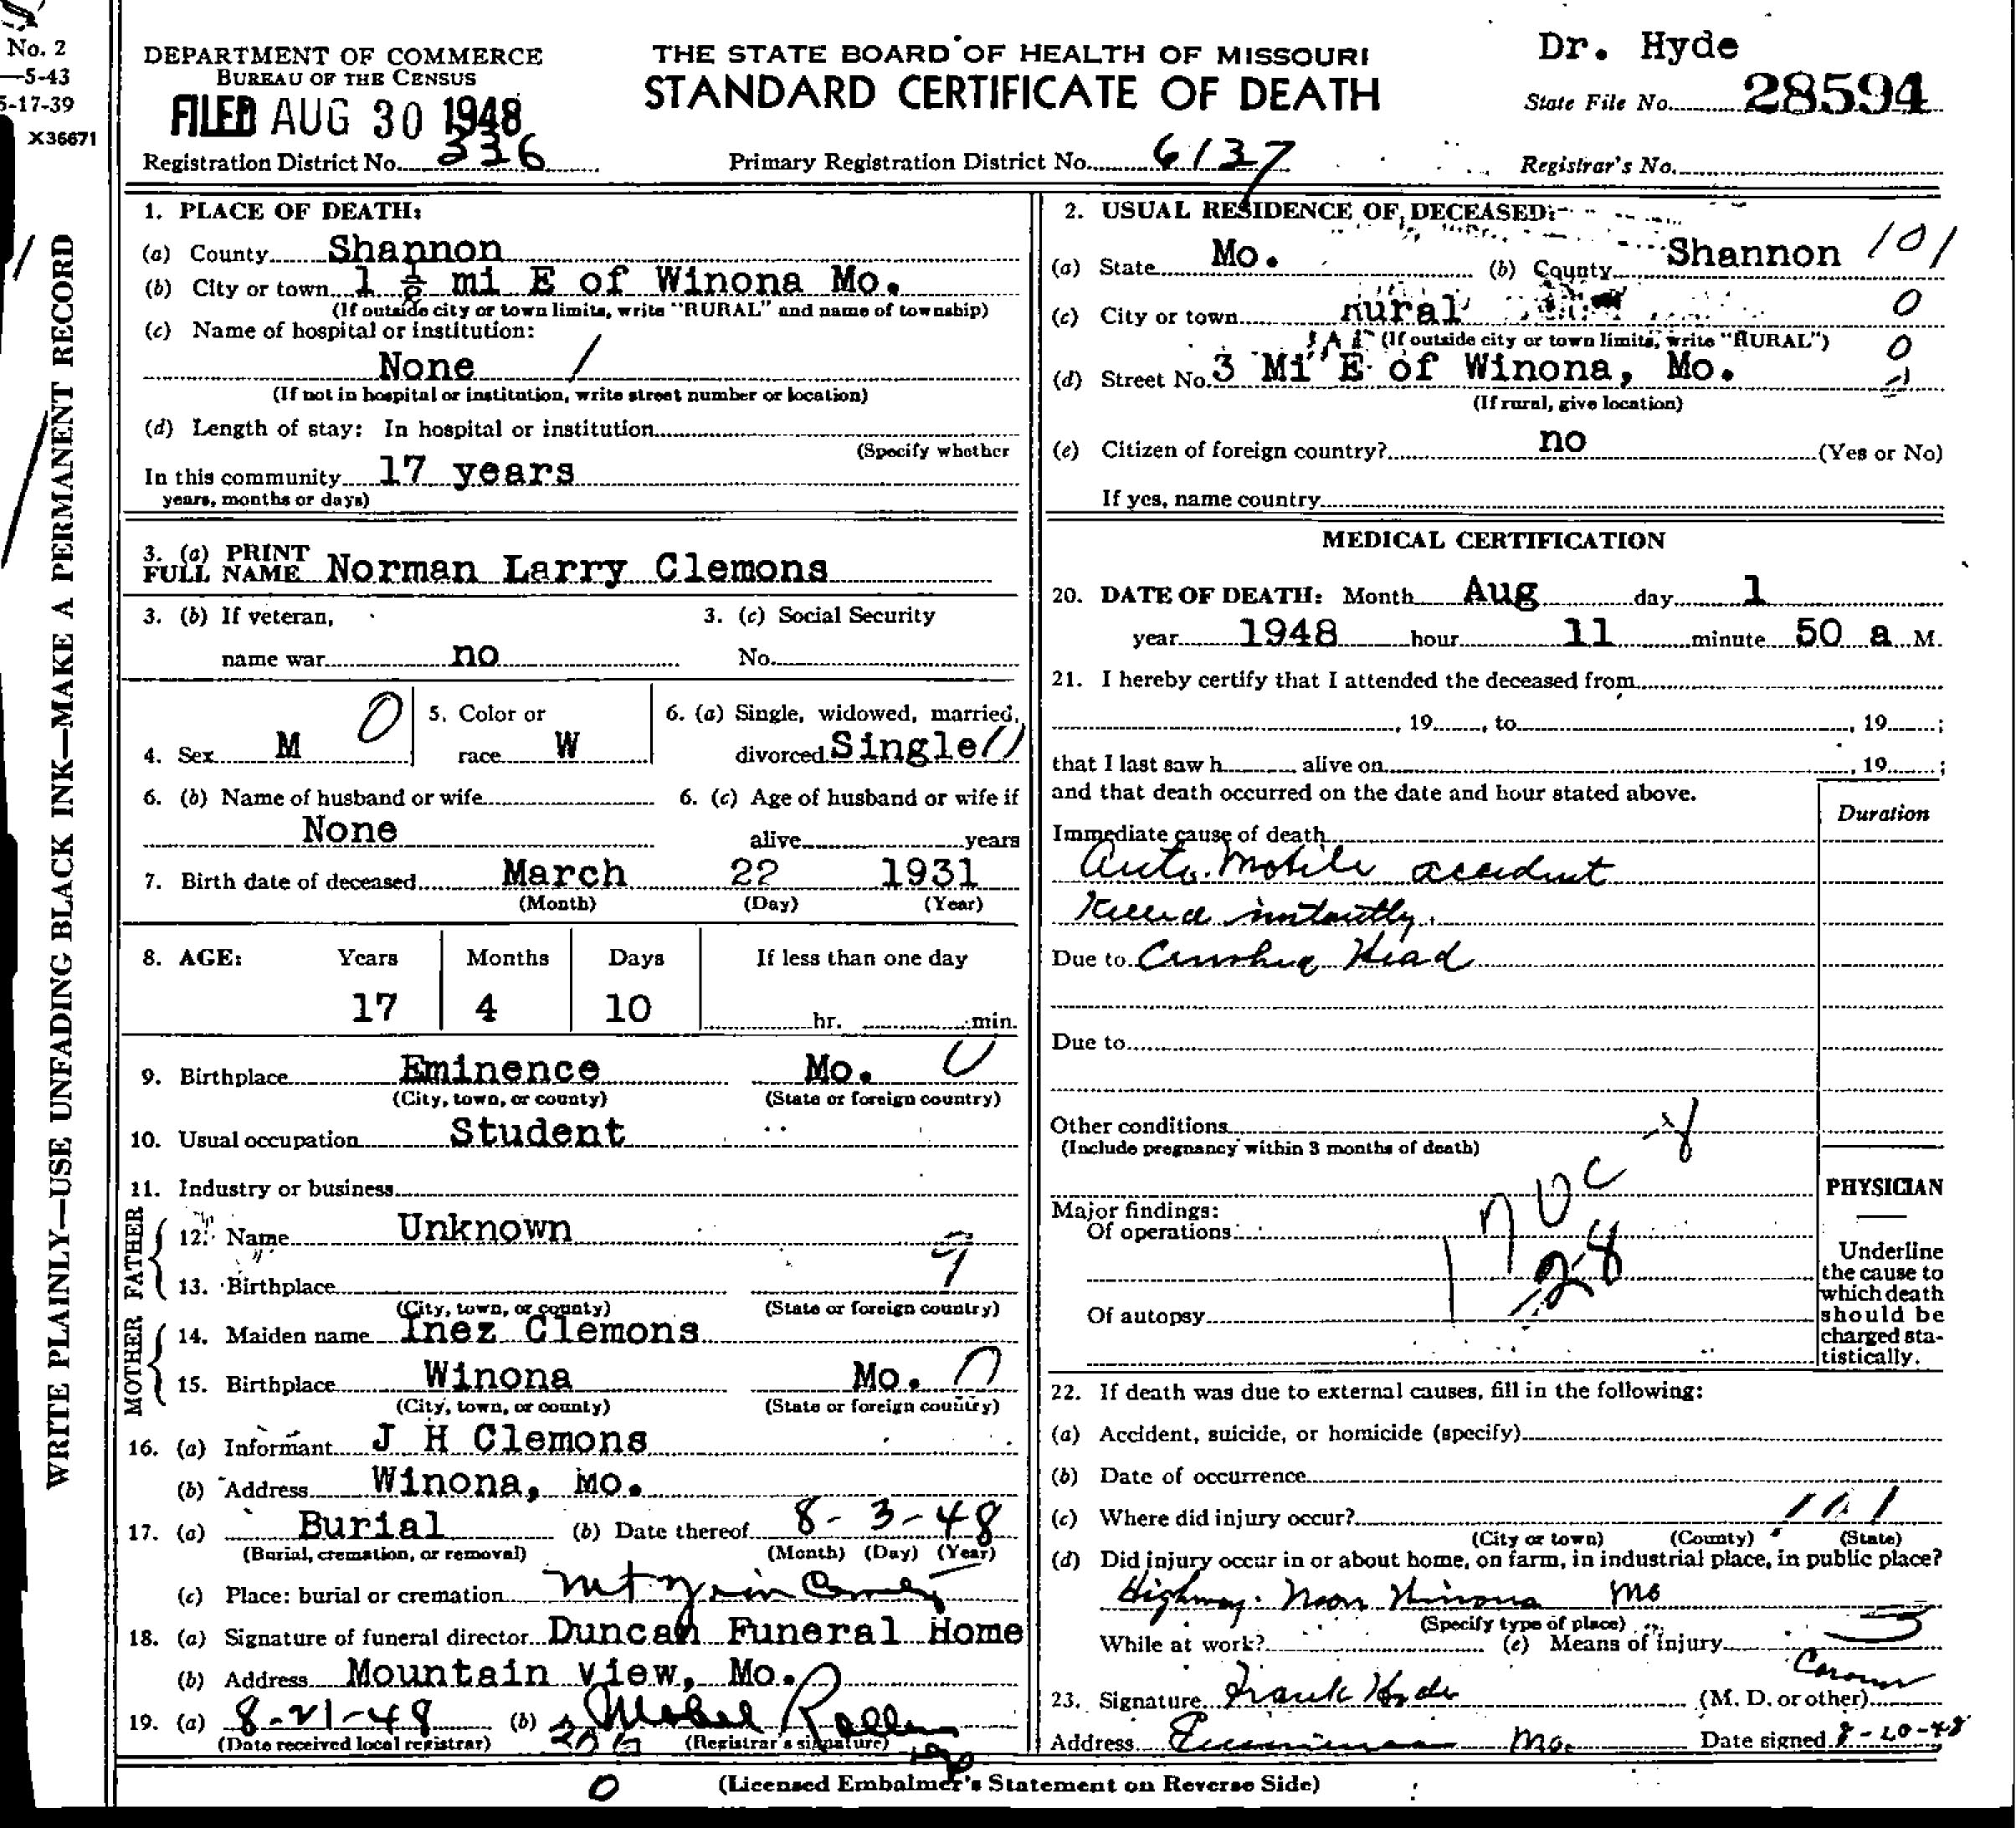 No. 2
—5-43
5-17-39
X36671
WRITE PLAINLY—USE UNFADING BLACK INK—MAKE A PERMANENT RECORD
DEPARTMENT OF COMMERCE
BUREAU OF THE CENSUS
FILED AUG 30 1948
THE STATE BOARD OF HEALTH OF MISSOURI
STANDARD CERTIFICATE OF DEATH
Dr. Hyde
State File No. 28594
Registration District No. 336
Primary Registration District No. 6137
Registrar's No.
1. PLACE OF DEATH:
(a) County Shannon
(b) City or town 1 ½ mi E of Winona Mo.
(If outside city or town limits, write "RURAL" and name of township)
(c) Name of hospital or institution:
None /
(If not in hospital or institution, write street number or location)
(d) Length of stay: In hospital or institution
(Specify whether
In this community 17 years
years, months or days)
3. (a) PRINT
FULL NAME Norman Larry Clemons
3. (b) If veteran,
name war no
3. (c) Social Security
No.
4. Sex M 0
5. Color or
race W
6. (a) Single, widowed, married,
divorced Single
6. (b) Name of husband or wife
None
6. (c) Age of husband or wife if
alive years
7. Birth date of deceased March 22 1931
(Month) (Day) (Year)
8. AGE: Years Months Days If less than one day
17 4 10 hr. min.
9. Birthplace Eminence Mo. 0
(City, town, or county) (State or foreign country)
10. Usual occupation Student
11. Industry or business
FATHER
12. Name Unknown
13. Birthplace 9
(City, town, or county) (State or foreign country)
MOTHER
14. Maiden name Inez Clemons
15. Birthplace Winona Mo. 0
(City, town, or county) (State or foreign country)
16. (a) Informant J H Clemons
(b) Address Winona, Mo.
17. (a) Burial (b) Date thereof 8-3-48
(Burial, cremation, or removal) (Month) (Day) (Year)
(c) Place: burial or cremation Mt
18. (a) Signature of funeral director Duncan Funeral Home
(b) Address Mountain View, Mo.
19. (a) 8-21-48 (b) Mabel
(Date received local registrar) (Registrar's signature)
2. USUAL RESIDENCE OF DECEASED:
(a) State Mo. (b) County Shannon 101
(c) City or town rural 0
(If outside city or town limits, write "RURAL") 0
(d) Street No. 3 Mi E of Winona, Mo.
(If rural, give location)
(e) Citizen of foreign country? no (Yes or No)
If yes, name country
MEDICAL CERTIFICATION
20. DATE OF DEATH: Month Aug day 1
year 1948 hour 11 minute 50 a M.
21. I hereby certify that I attended the deceased from
, 19 , to , 19 ;
that I last saw h alive on , 19 ;
and that death occurred on the date and hour stated above.
Duration
Immediate cause of death
Auto Mobile accident
Killed instantly.
Due to Crushed Head
Due to
Other conditions
(Include pregnancy within 3 months of death)
Major findings:
Of operations
Of autopsy
PHYSICIAN
Underline
the cause to
which death
should be
charged sta-
tistically.
22. If death was due to external causes, fill in the following:
(a) Accident, suicide, or homicide (specify)
(b) Date of occurrence
(c) Where did injury occur? 101
(City or town) (County) (State)
(d) Did injury occur in or about home, on farm, in industrial place, in public place?
Highway. Near Winona Mo
(Specify type of place)
While at work? (e) Means of injury
23. Signature Frank Hyde (M. D. or other) Coroner
Address Eminence Mo. Date signed 8-20-48
(Licensed Embalmer's Statement on Reverse Side)
0